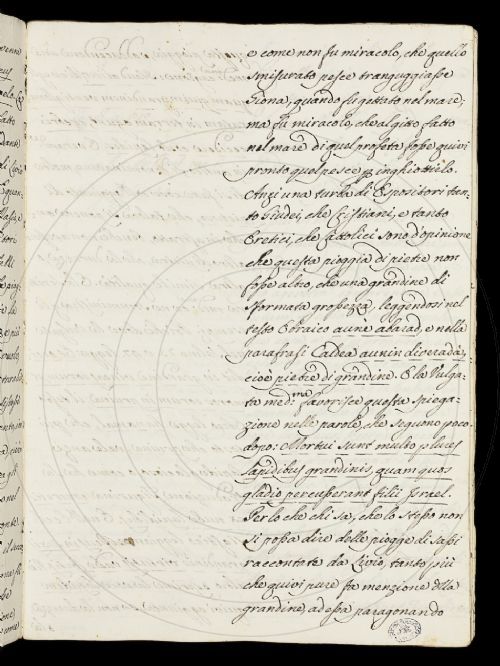 e come non fu miracolo, che quello
smisurato pesce trangugiasse
Giona, quando fu gettato nel mare;
ma fù miracolo, che al gitto fatto
nel mare di quel profeta fosse quivi
pronto quel pesce per inghiottirlo.
Anzi una turba di Espositori tan-
to Giudei, che Xristiani, e tanto
Eretici, che Cattolici sono d'opinione
che questa pioggia di pietre non
fosse altro, che una grandine di
sformata grossezza, leggendosi nel
testo Ebraico aunè abarad, e nella
parafrasi Caldea aunin diverada,
cioè pietre di grandine. E la Vulga-
ta med.ma favorisce questa spiega-
zione nelle parole, che seguono poco
dopo: Mortui sunt multo plures
lapidibus grandinis, quam quos
gladio percusserant filii Israel.
Per lo che chi sà, che lo stesso non
si possa dire delle piogge di sassi
raccontate da Livio, tanto più
che quivi pure fa menzione della
grandine, ad essa paragonando